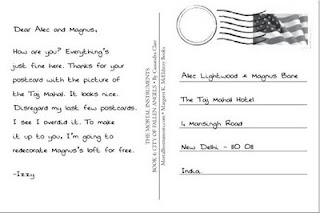 Dear Alec and Magnus,
How are you? Everything's
just fine here. Thanks for your
postcard with the picture of
the Taj Mahal. It looks nice.
Disregard my last few postcards.
I see I overdid it. To make
it up to you, I'm going to
redecorate Magnus's loft for free.
-Izzy
THE MORTAL INSTRUMENTS
BOOK 4: CITY OF FALLEN ANGELS • By Cassandra Clare
MortalInstruments.com • Margaret K. McElderry Books
Alec Lightwood & Magnus Bane
The Taj Mahal Hotel
1 Mansingh Road
New Delhi - 110 011
India